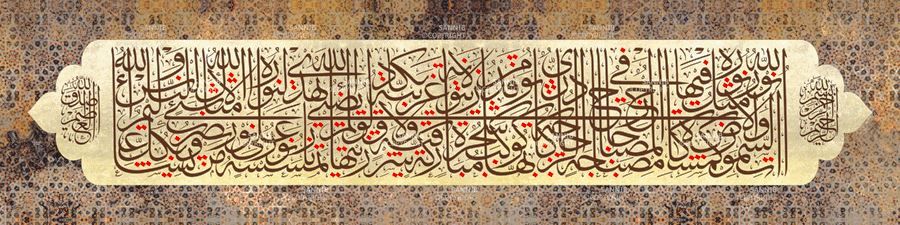 بسم الله الرحمن الرحيم
الله نور السموات والأرض مثل نوره كمشكاة فيها مصباح المصباح في زجاجة الزجاجة كأنها كوكب دري يوقد من شجرة مباركة زيتونة لا شرقية ولا غربية يكاد زيتها يضيء ولو لم تمسسه نار نور على نور يهدي الله لنوره من يشاء ويضرب الله الأمثال للناس والله بكل شيء عليم
صدق الله العظيم
SANNIB
©COPYRIGHT